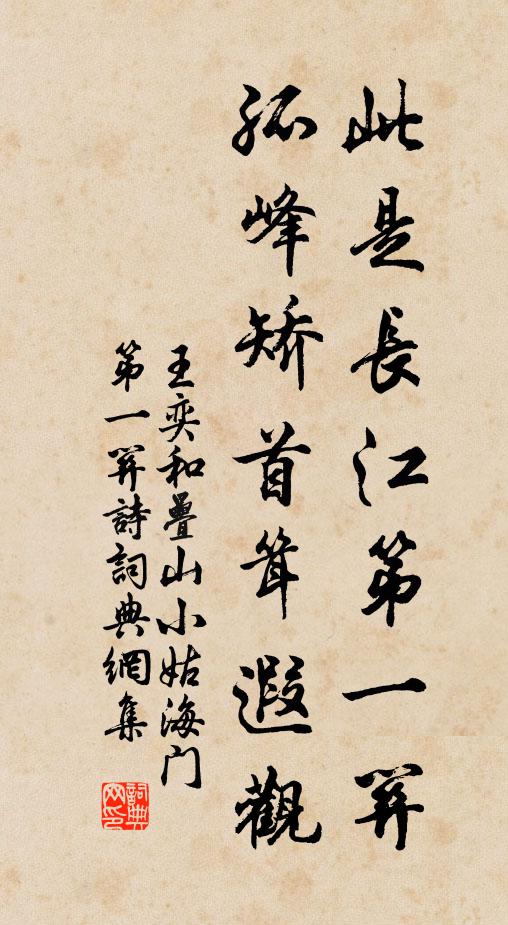 此是長江第一關
孤峰矯首聳遐觀
王奕和疊山小姑海門
第一關詩詞典網集
詞典网印